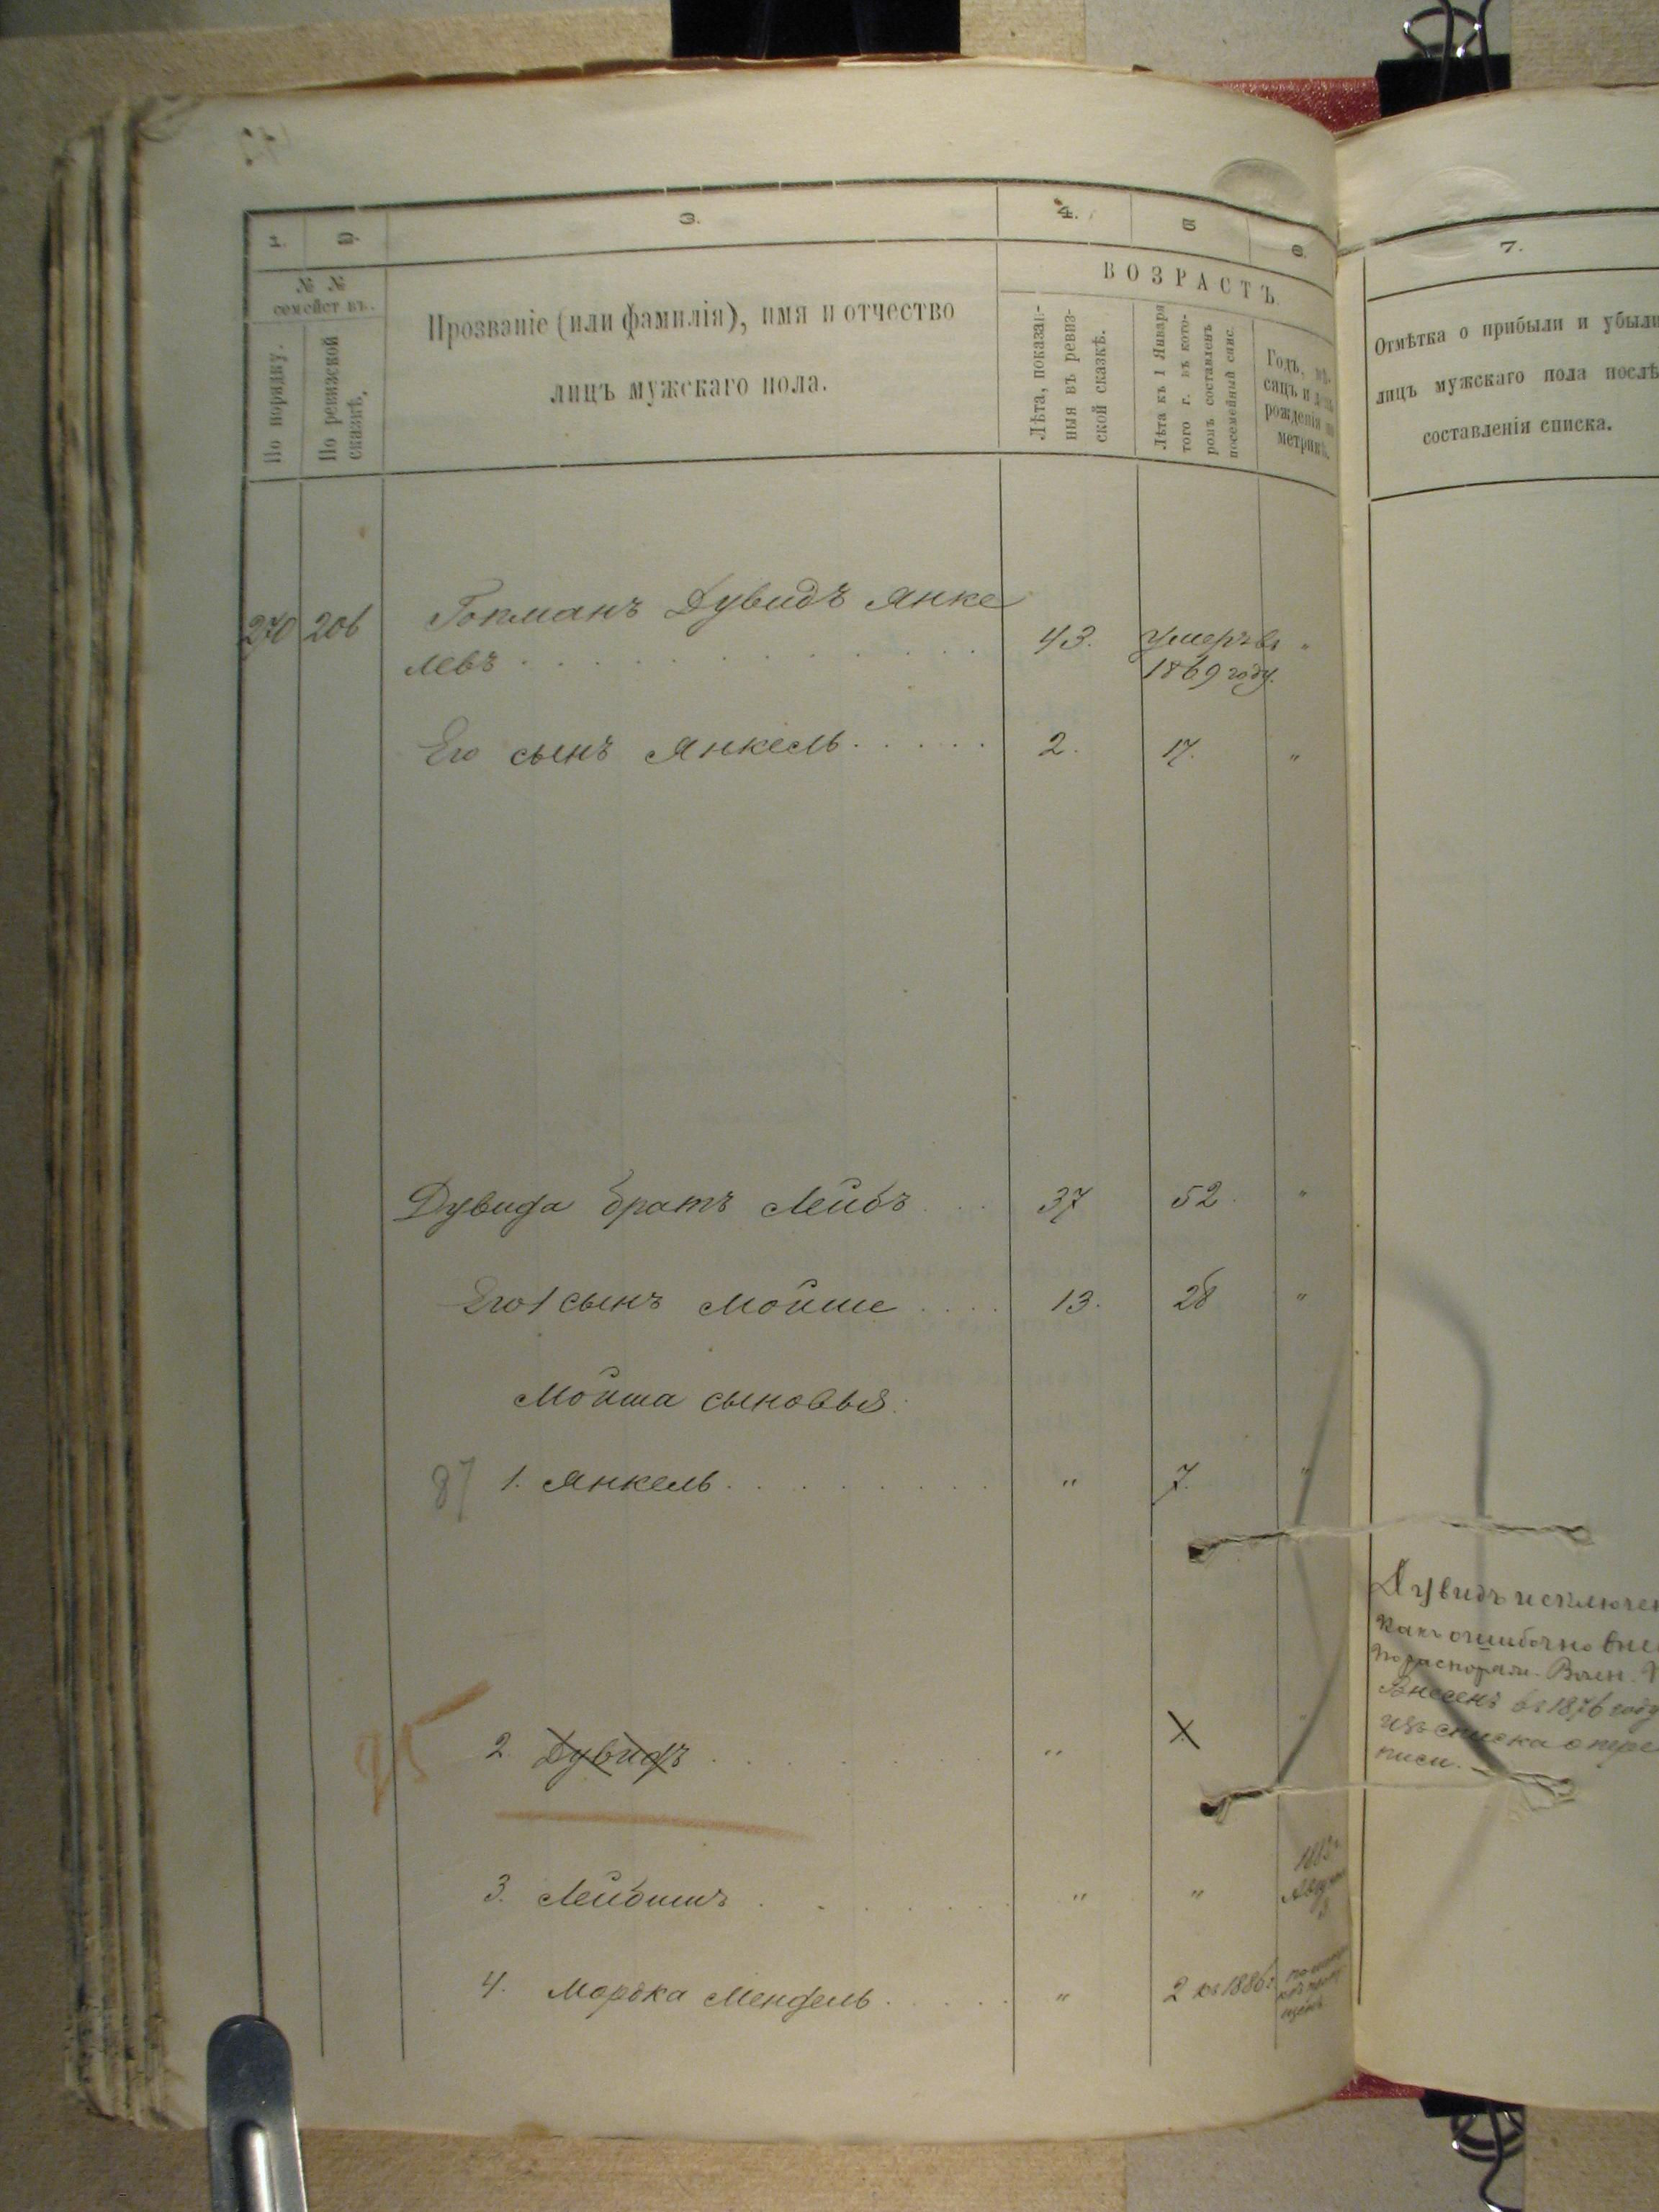 1.
2.
3.
4.
5
6.
7.
№ №
семействъ.
По порядку.
По ревизской
сказкѣ.
Прозваніе (или фамилія), имя и отчество
лицъ мужскаго пола.
ВОЗРАСТЪ
Лѣта, показан-
ныя въ ревиз-
ской сказкѣ.
Лѣта къ 1 Января
того г. въ кото-
ромъ составленъ
посемейный спис.
Годъ, мѣ-
сяцъ и день
рожденія по
метрикѣ.
Отмѣтка о прибыли и убыли
лицъ мужскаго пола послѣ
составленія списка.
270 206 Гокманъ Дувидъ Янке
левъ 43. Умеръ въ "
1869 году.
Его сынъ Янкель 2. 17. "
Дувида братъ Лейбъ 37 52. "
Его 1 сынъ Мойше 13. 28 "
Мойша сыновья:
87 1. Янкель " 7. "
25 2. Дувидъ " "
3. Лейбишъ " "
4. Мордка Мендель " 2 къ 1886 г.
Дувидъ исключен
какъ ошибочно вне
по распоряж. Воен.
Внесенъ въ 1876 году
изъ списка о пере
писи.